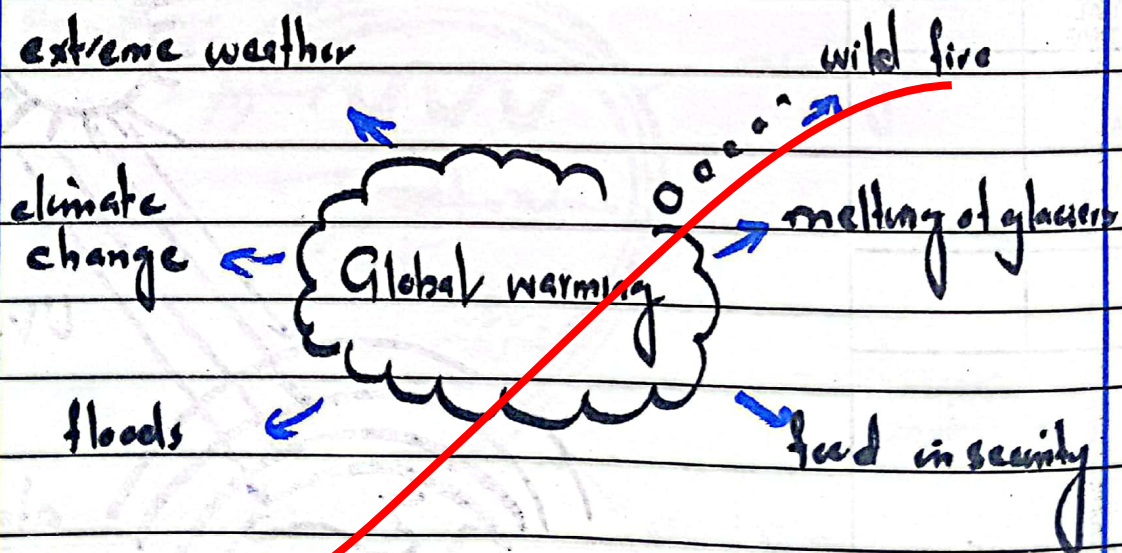 extreme weather
wild fire
climate
change
Global warming
melting of glaciers
floods
food in security